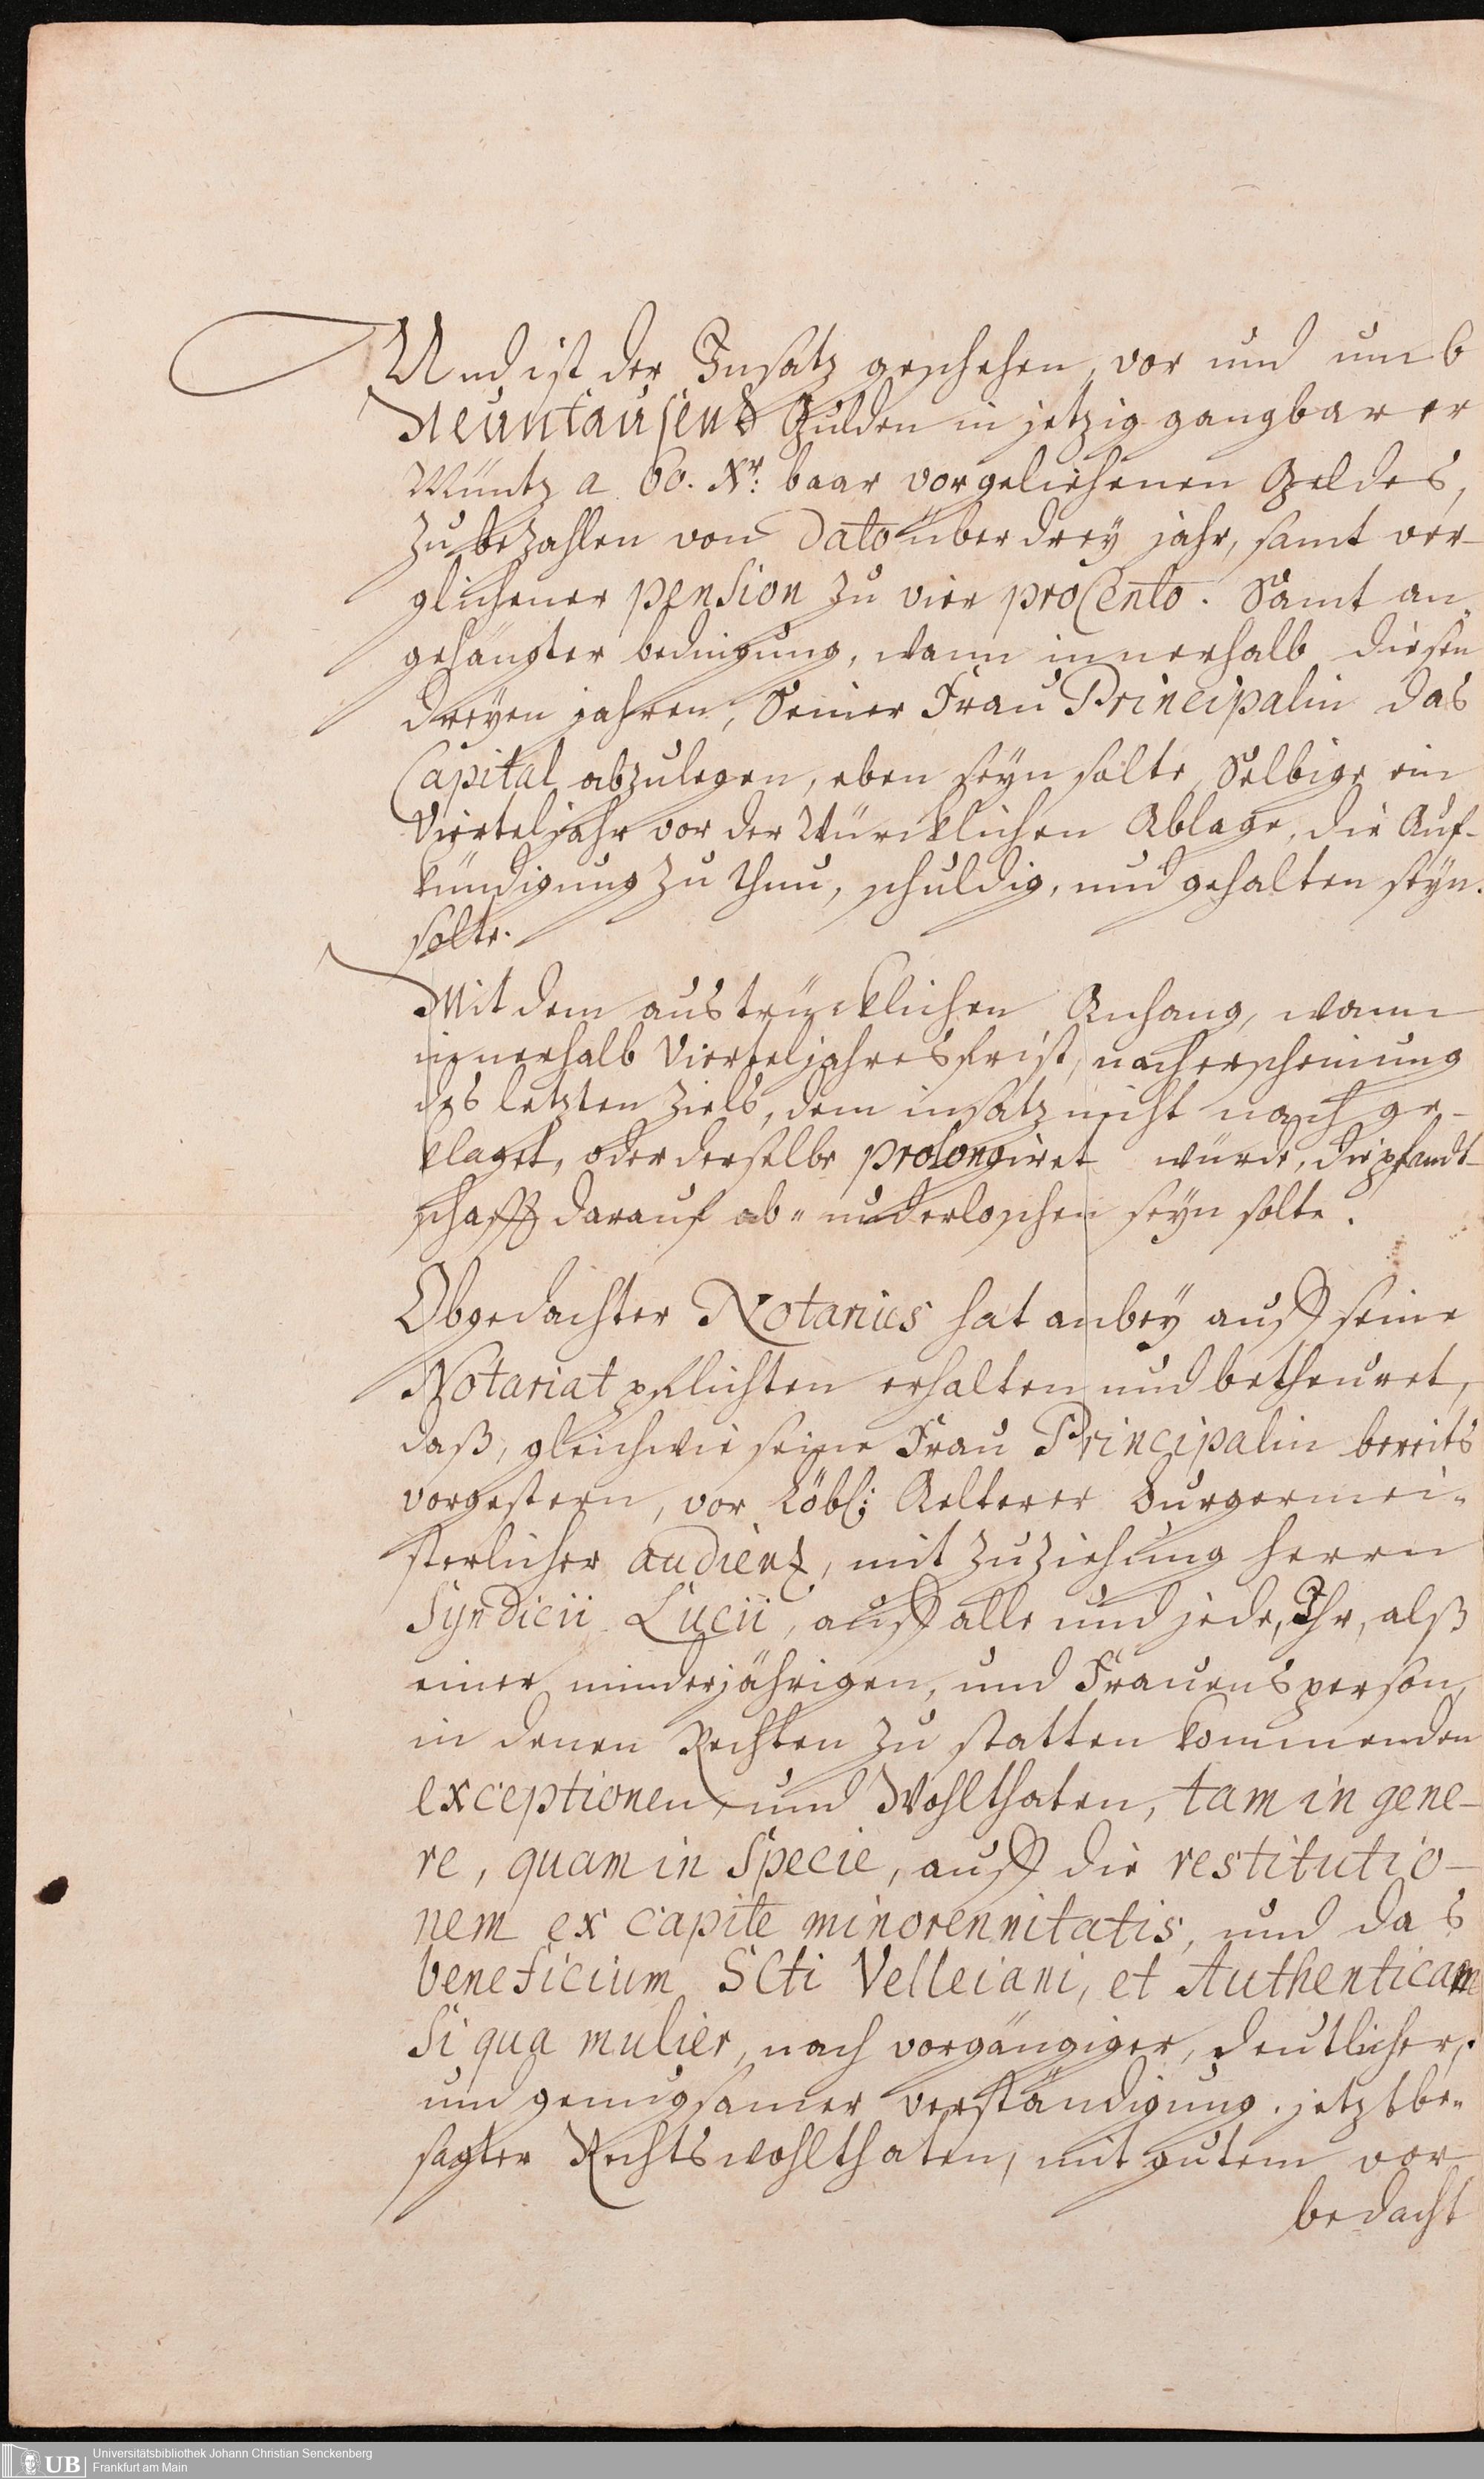 Und ist der Insatz geschehen, vor und umb
Neuntausend Gulden in jetzig gangbarer
Müntz a 60. Xr: baar vorgeliehenen Geldes,
zu bezahlen von Dato über drey jahr, samt ver-
glichener pension zu vier proCento. Samt an-
gehängter bedingung, wann innerhalb diesen
dreyen jahren, Seiner Frau Principalin das
Capital abzulegen, eben seyn solte, Selbige ein
Vierteljahr vor der Würcklichen Ablage, die Auf-
kündigung zu thun, schuldig, und gehalten seyn
solte.
Mit dem austrücklichen Anhang, wann
innerhalb Vierteljahresfrist, nach erscheinung
des letzten Ziels, dem insatz nicht nach ge-
klaget, oder derselbe prolongiret würde, die pfandt-
schafft darauf ab- und erloschen seyn solte.
Obgedachter Notarius hat anbey auff seine
Notariat pflichten erhalten und betheuret,
daß, gleichwie seine Frau Principalin bereits
vorgestern, vor Löbl: Aelterer Burgermei-
sterlicher audienz, mit zuziehung Herrn
Syndicii Lucii, auff alle und jede, Ihr, alß
einer minderjährigen, und Frauensperson,
in denen Rechten zu statten kommenden
exceptionen, und Wohlthaten, tam in gene-
re, quam in Specie, auff die restitutio-
nem ex capite minorennitatis, und das
beneficium SCti Velleiani, et Authenticam
Si qua mulier, nach vorgängiger, deutlicher,
und genugsamer verständigung, jetztbe-
sagter Rechtswohlthaten, mit gutem vor
bedacht
UB
Universitätsbibliothek Johann Christian Senckenberg
Frankfurt am Main